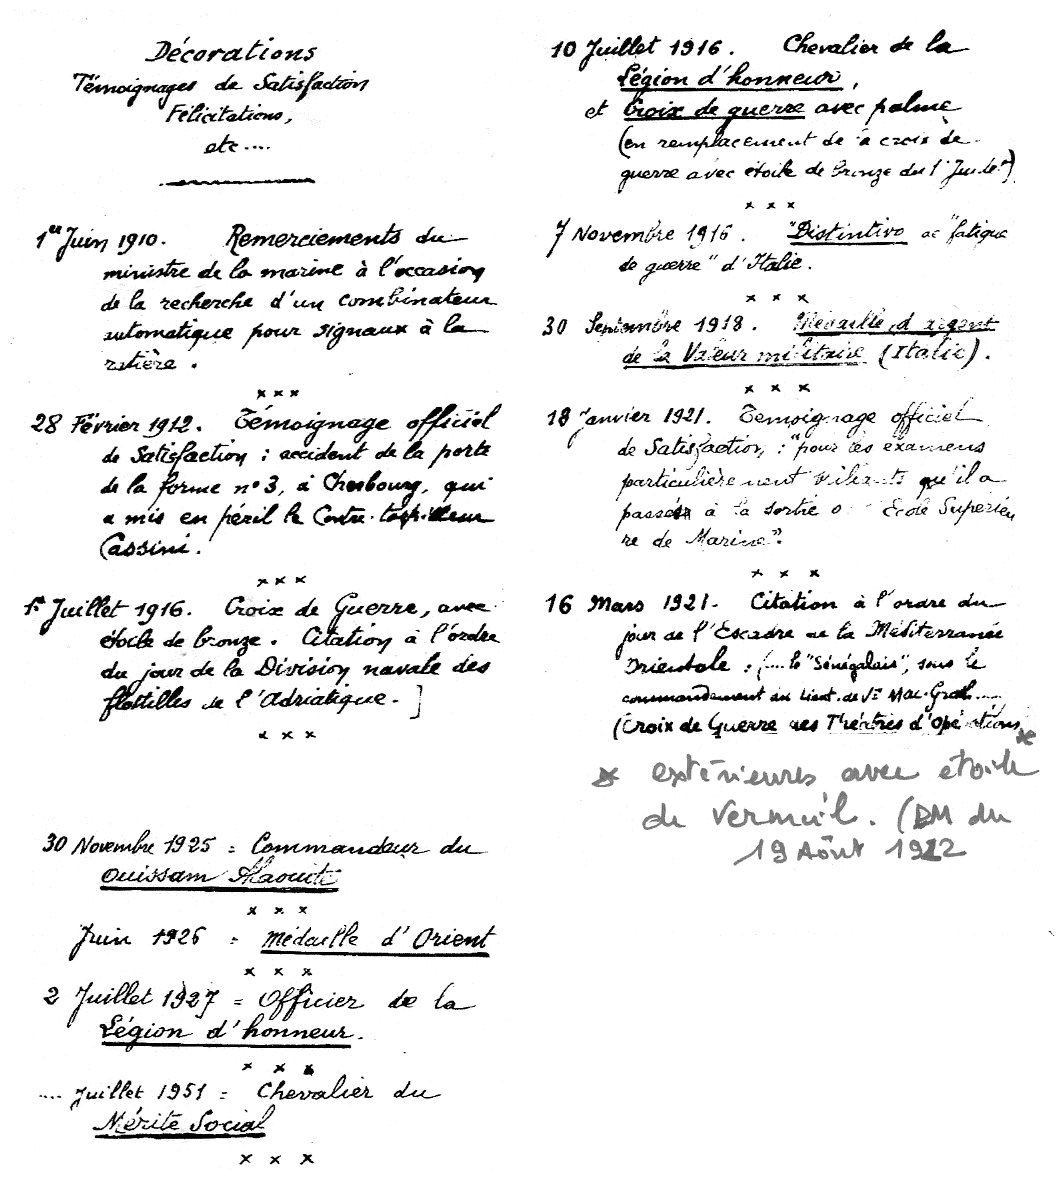 Décorations
Témoignages de Satisfaction
Félicitations,
etc....
1er Juin 1910. Remerciements du
ministre de la marine à l'occasion
de la recherche d'un combinateur
automatique pour signaux à la
ratière.
x x x
28 Février 1912. Témoignage officiel
de Satisfaction : accident de la porte
de la forme n° 3, à Cherbourg, qui
a mis en péril le Contre-torpilleur
Cassini.
x x x
1er Juillet 1916. Croix de Guerre, avec
étoile de bronze. Citation à l'ordre
du jour de la Division navale des
flottilles de l'Adriatique. ]
x x x
30 Novembre 1925 = Commandeur du
Ouissam Alaouite
x x x
Juin 1926 = Médaille d'Orient
x x x
2 Juillet 1927 = Officier de la
Légion d'honneur.
x x x
.... Juillet 1951 = Chevalier du
Mérite Social
x x x
10 Juillet 1916. Chevalier de la
Légion d'honneur,
et Croix de guerre avec palme
(en remplacement de la croix de
guerre avec étoile de bronze du 1er Juillet)
x x x
7 Novembre 1916. "Distintivo de "fatigue
de guerre" d'Italie.
x x x
30 Septembre 1918. Médaille d'argent
de la Valeur militaire (Italie).
x x x
18 Janvier 1921. Témoignage officiel
de Satisfaction : "pour les examens
particulièrement brillants qu'il a
passés à la sortie de l'Ecole Supérieu
re de Marine".
x x x
16 Mars 1921. Citation à l'ordre du
jour de l'Escadre de la Méditerranée
Orientale : (.... le "Sénégalais", sous le
commandement du Lieut. de Vau Mac-Grath....
(Croix de Guerre des Théâtres d'Opérations *
* extérieures avec étoile
de vermeil. (DM du
19 Août 1922